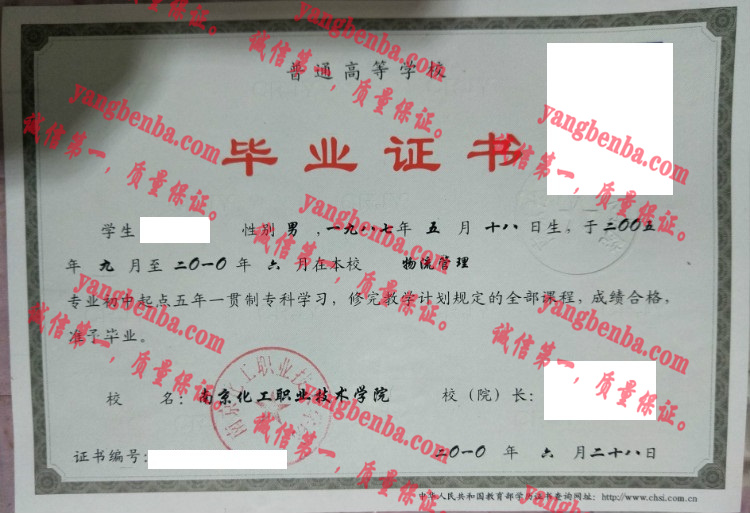 普通高等学校
毕业证书
学生 性别 男 ,一九八七年 五 月 十八 日生，于 二00五
年 九 月至 二0一0 年 六 月在本校 物流管理
专业初中起点五年一贯制专科学习，修完教学计划规定的全部课程，成绩合格，
准予毕业。
校 名： 南京化工职业技术学院 校（院）长：
证书编号： 二0一0 年 六 月二十八日
中华人民共和国教育部学历证书查询网址：http://www.chsi.com.cn
南京化工职业技术学院
yangbenba.com
诚信第一，质量保证。
yangbenba.com
诚信第一，质量保证。
yangbenba.com
诚信第一，质量保证。
yangbenba.com
诚信第一，质量保证。
yangbenba.com
诚信第一，质量保证。
yangbenba.com
诚信第一，质量保证。
yangbenba.com
诚信第一，质量保证。
yangbenba.com
诚信第一，质量保证。